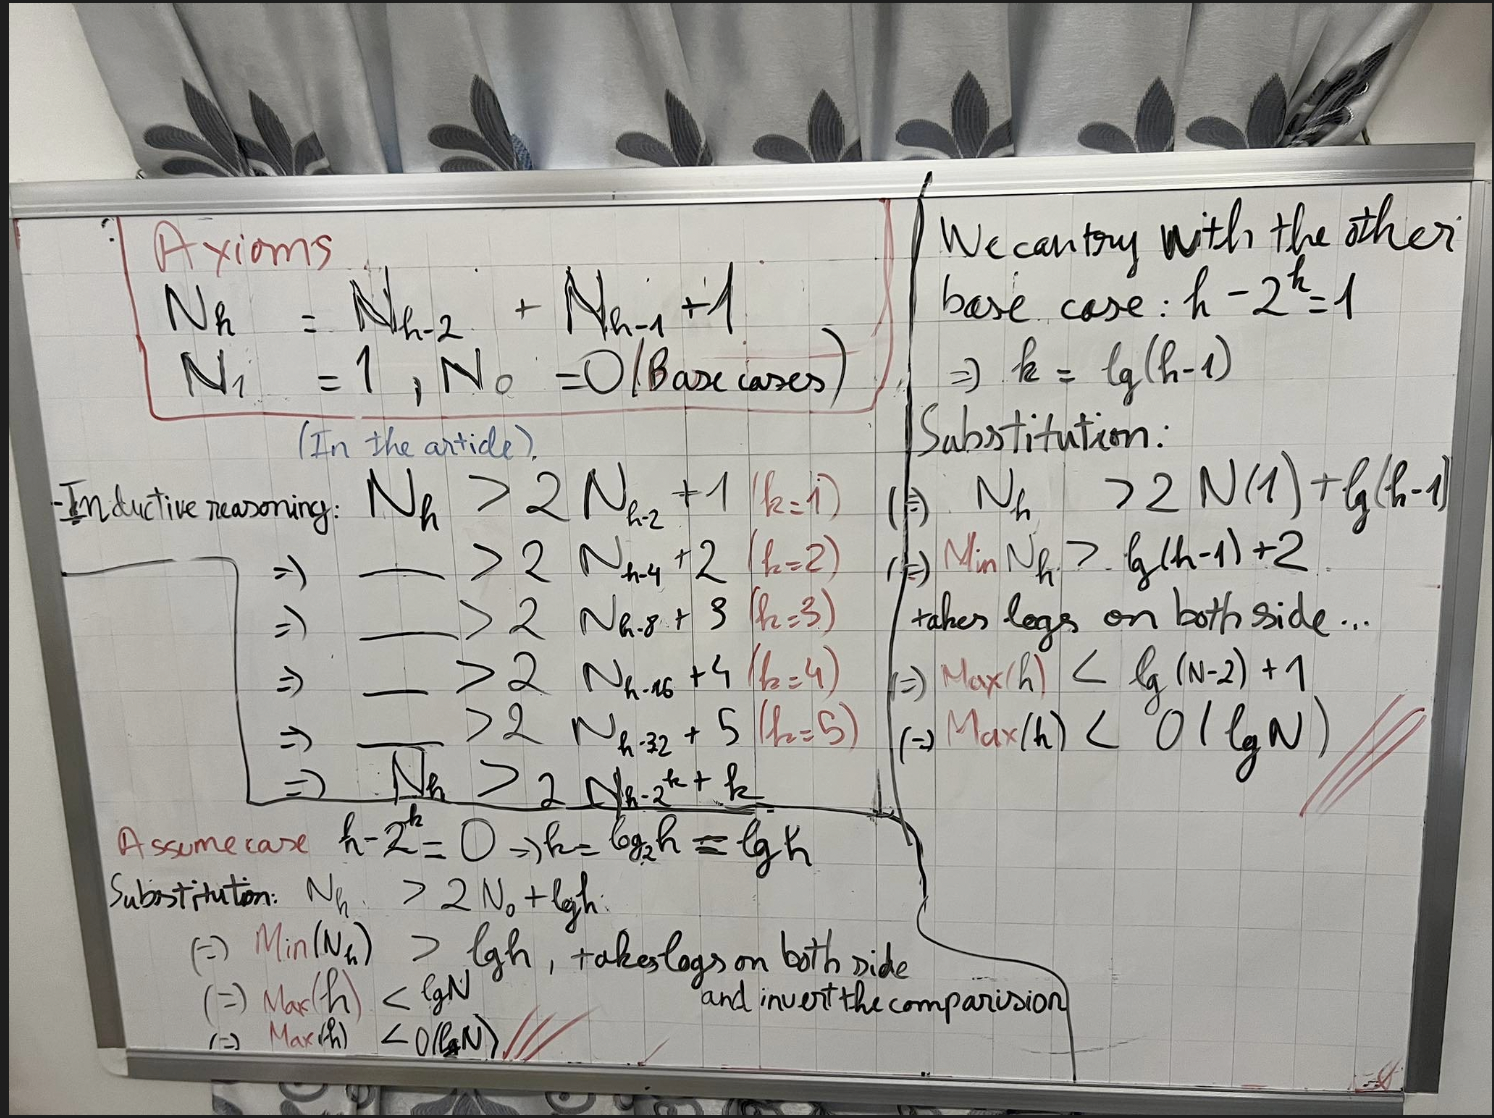 Axioms
N_h = N_{h-2} + N_{h-1} + 1
N_1 = 1, N_0 = 0 (Base cases)
(In the article).
-Inductive reasoning: N_h > 2 N_{h-2} + 1 (k=1)
=) __ > 2 N_{h-4} + 2 (k=2)
=) __ > 2 N_{h-8} + 3 (k=3)
=) __ > 2 N_{h-16} + 4 (k=4)
=) __ > 2 N_{h-32} + 5 (k=5)
=) N_h > 2 N_{h-2^k} + k
Assume case h-2^k = 0 =) k = log_2 h = lg h
Substitution: N_h > 2 N_0 + lg h.
(=) Min(N_h) > lg h, takes logs on both side
and invert the comparision
(=) Max(h) < lg N
(=) Max(h) < O(lg N)
We can try with the other
base case: h - 2^k = 1
=) k = lg(h-1)
Substitution:
(=) N_h > 2 N(1) + lg(h-1)
(=) Min N_h > lg(h-1) + 2
takes logs on both side...
(=) Max(h) < lg (N-2) + 1
(=) Max(h) < O(lg N)